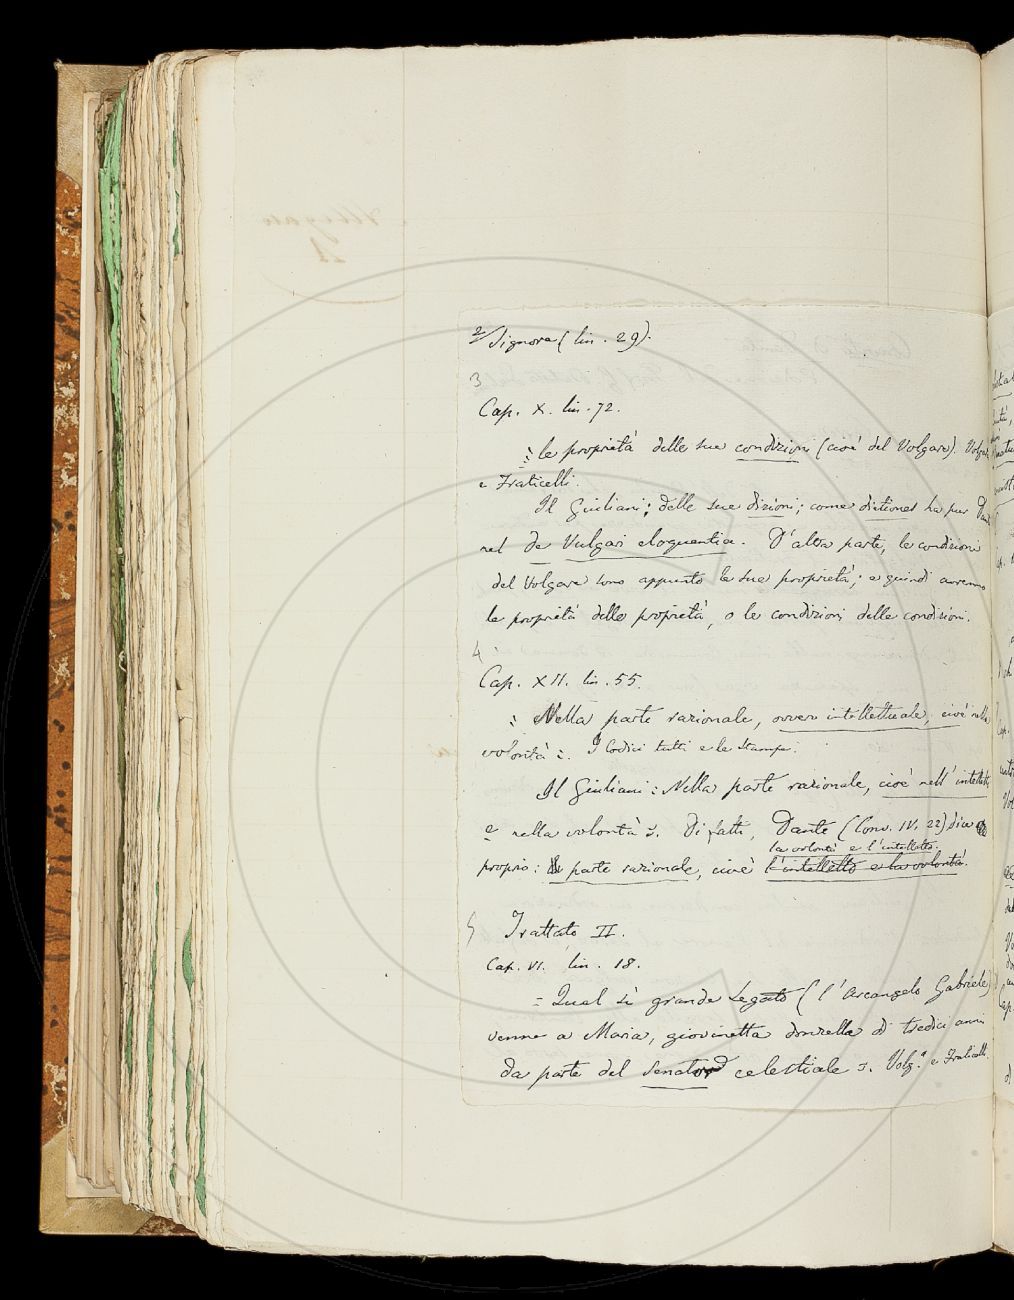 2/ Signora (lin. 29).
3
Cap. X. lin. 72.
= le proprietà delle sue condizioni (cioè del Volgare). Volgat.
e Fraticelli.
Il Giuliani: delle sue dizioni; come dictiones ha pur Dante
nel de Vulgari eloquentia. D'altra parte, le condizioni
del Volgare sono appunto le sue proprietà; e quindi avremmo
le proprietà delle proprietà, o le condizioni delle condizioni.
4
Cap. XII. lin. 55.
: Nella parte razionale, ovvero intellettuale, cioè nella
volontà =. I Codici tutti e le stampe.
Il Giuliani: Nella parte razionale, cioè nell'intelletto
e nella volontà =. Di fatti, Dante (Conv. IV. 22) dice
la volontà e l'intelletto.
proprio: parte razionale, cioè l'intelletto e la volontà.
5 Trattato II.
Cap. VI. lin. 18.
= Qual sì grande Legato (l'Arcangelo Gabriele)
venne a Maria, giovinetta donzella di tredici anni
da parte del Senator celestiale =. Volg.ª e Fraticelli.